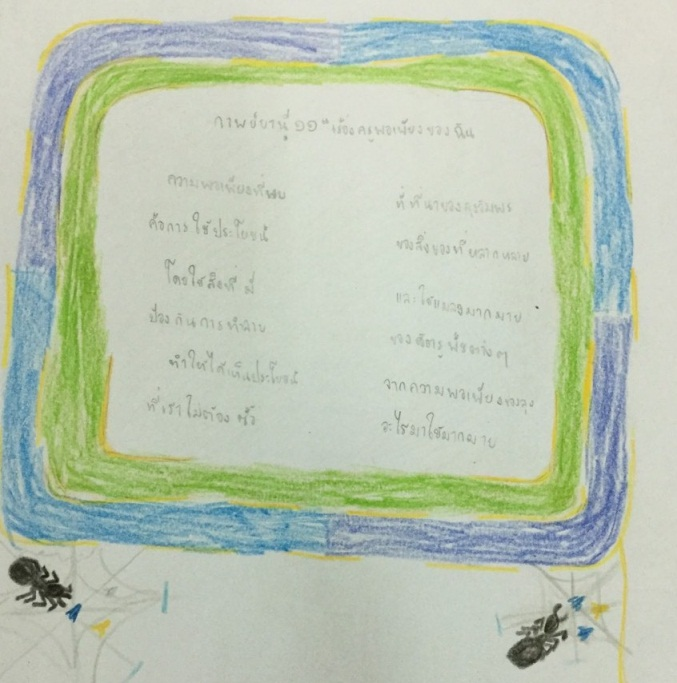 กาพย์ยานี ๑๑ "เรื่องครูพอเพียงของฉัน
ความพอเพียงที่พบ ที่ที่นาของลุงริมพร
คือการใช้ประโยชน์ ของสิ่งของที่หลากหลาย
โดยใช้สิ่งที่มี และใช้แมลงมากมาย
ป้องกันการทำลาย ของศัตรูพืชต่างๆ
ทำให้ได้เห็นประโยชน์ จากความพอเพียงของลุง
ที่เราไม่ต้องซื้อ อะไรมาใช้มากมาย